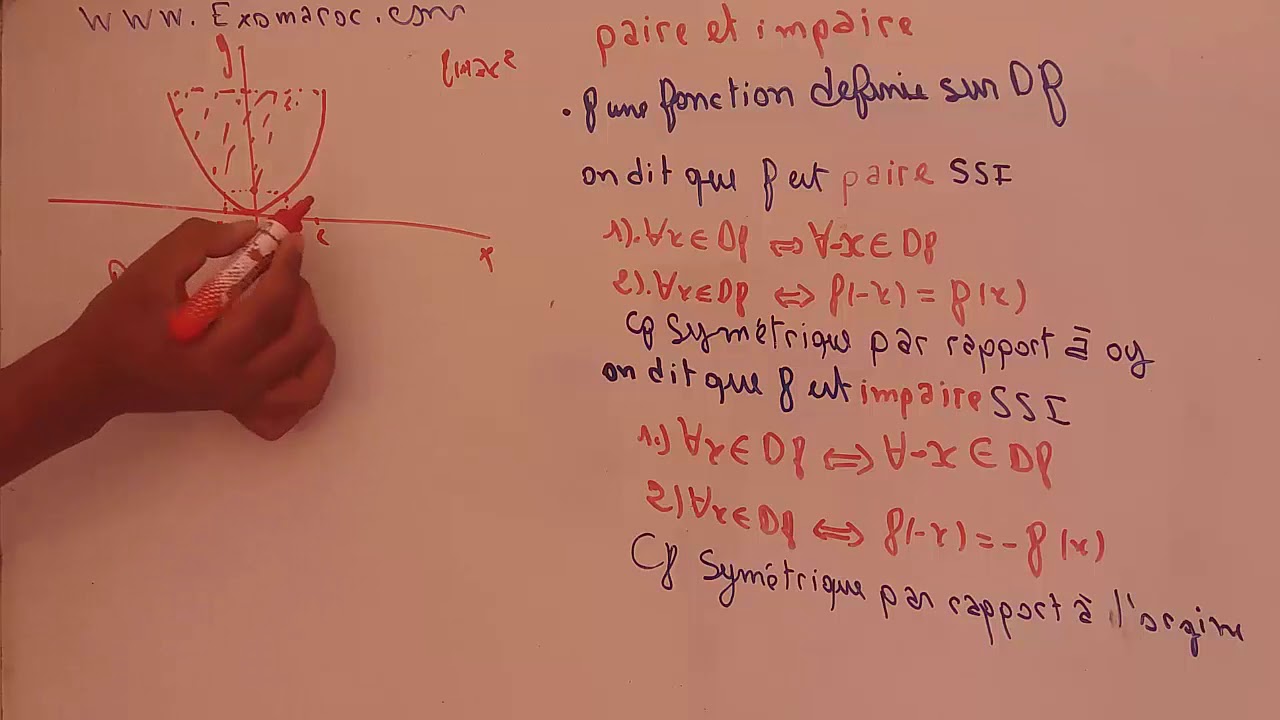 www.Exomaroc.com
y
f(x)=x²
x
paire et impaire
. f une fonction definie sur Df
on dit que f est paire SSI
1).∀x∈Df ⇔ ∀-x∈Df
2).∀x∈Df ⇔ f(-x) = f(x)
Cf symétrique par rapport à oy
on dit que f est impaire SSI
1.) ∀x∈Df ⇔ ∀-x∈Df
2) ∀x∈Df ⇔ f(-x) = -f(x)
Cf Symétrique par rapport à l'orgine